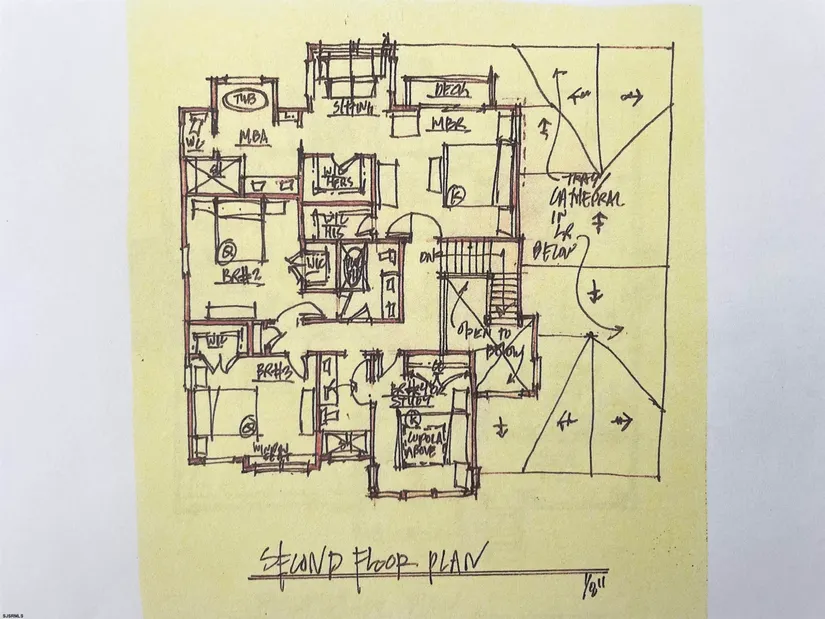 TUB
WC
MBA
SITTING
DECK
MBR
WIC
HERS
WIC
HIS
K
TRAY/
CATHEDRAL
IN
LR
BELOW
Q
BR#2
WIC
DN
OPEN TO
BELOW
WIC
BR#3
BR#4 OR
STUDY
K
CUPOLA
ABOVE
Q
SECOND FLOOR PLAN
1/8"
SJSRMLS